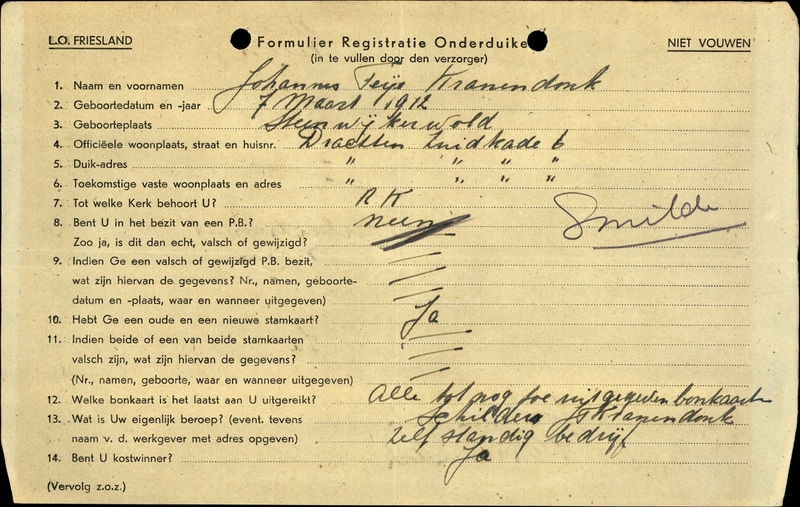 L.O. FRIESLAND
Formulier Registratie Onderduike
NIET VOUWEN
(in te vullen door den verzorger)
1. Naam en voornamen Johannes Feije Kranendonk
2. Geboortedatum en -jaar 7 Maart 1912
3. Geboorteplaats Steenwijkerwold
4. Officiëele woonplaats, straat en huisnr. Drachten Zuidkade 6
5. Duik-adres " " " "
6. Toekomstige vaste woonplaats en adres " " " "
7. Tot welke Kerk behoort U? RK
8. Bent U in het bezit van een P.B.? neen
Smilde
Zoo ja, is dit dan echt, valsch of gewijzigd?
9. Indien Ge een valsch of gewijzigd P.B. bezit,
wat zijn hiervan de gegevens? Nr., namen, geboorte-
datum en -plaats, waar en wanneer uitgegeven)
10. Hebt Ge een oude en een nieuwe stamkaart? Ja
11. Indien beide of een van beide stamkaarten
valsch zijn, wat zijn hiervan de gegevens?
(Nr., namen, geboorte, waar en wanneer uitgegeven)
12. Welke bonkaart is het laatst aan U uitgereikt? Alle tot nog toe uitgegeven bonkaarten
13. Wat is Uw eigenlijk beroep? (event. tevens Schilder Kranendonk
naam v. d. werkgever met adres opgeven) Zelfstandig bedrijf
14. Bent U kostwinner? Ja
(Vervolg z.o.z.)